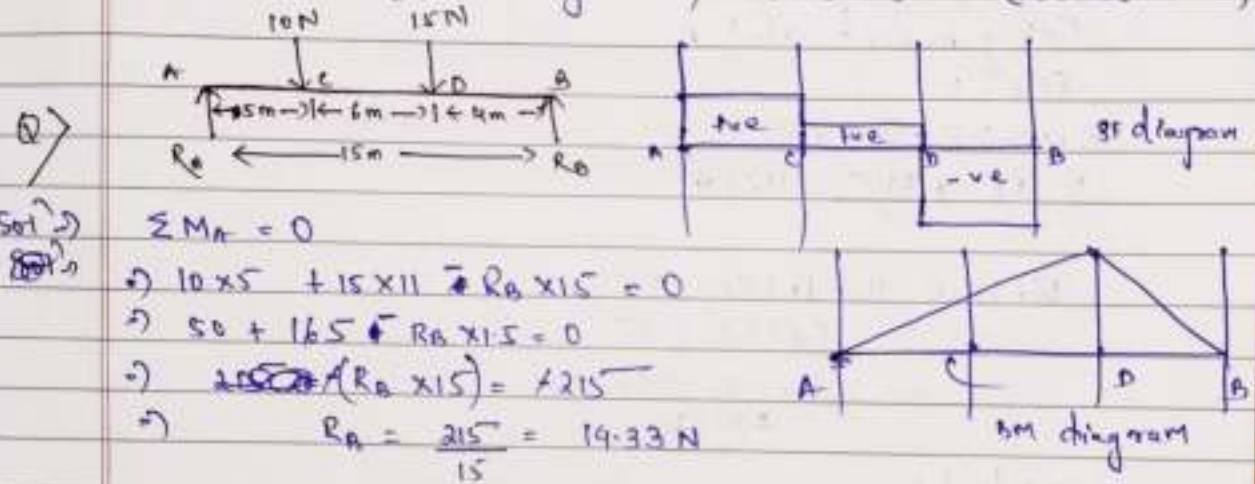 10N 15N
A C D B
5m 6m 4m
Q> R_A 15m R_B
+ve +ve -ve
A C D B
SF diagram
Solⁿ ⇒ ΣM_A = 0
⇒ 10×5 + 15×11 - R_B ×15 = 0
⇒ 50 + 165 - R_B ×15 = 0
⇒ (R_B ×15) = +215
⇒ R_B = 215/15 = 14.33 N
A C D B
BM diagram